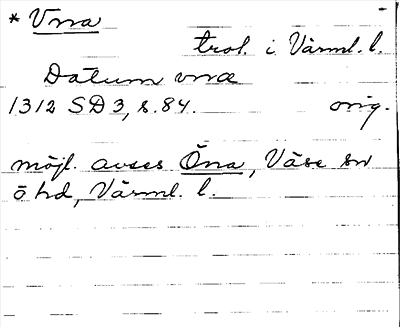 * Vna
trol. i Värml. l.
Datum vna
1312 SD 3, s. 84. orig.
möjl. avses Öna, Väse sn
ö hd, Värml. l.